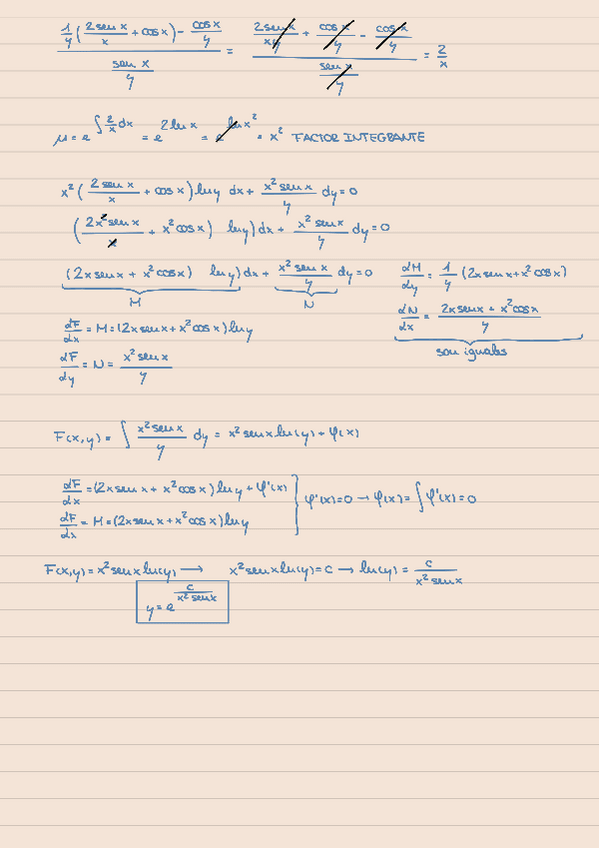 1/y (2 sen x/x + cos x) - cos x/y / sen x/y = 2 sen x/xy + cos x/y - cos x/y / sen x/y = 2/x
μ = e^∫2/x dx = e^2 ln x = e^ln x² = x² FACTOR INTEGRANTE
x² (2 sen x/x + cos x) ln y dx + x² sen x/y dy = 0
(2x² sen x/x + x² cos x) ln y) dx + x² sen x/y dy = 0
(2x sen x + x² cos x) ln y) dx + x² sen x/y dy = 0 dM/dy = 1/y (2x sen x + x² cos x)
M N dN/dx = 2x sen x + x² cos x/y
dF/dx = M = (2x sen x + x² cos x) ln y
son iguales
dF/dy = N = x² sen x/y
F(x,y) = ∫ x² sen x/y dy = x² sen x ln(y) + φ(x)
dF/dx = (2x sen x + x² cos x) ln y + φ'(x)
φ'(x) = 0 → φ(x) = ∫ φ'(x) = 0
dF/dx = M = (2x sen x + x² cos x) ln y
F(x,y) = x² sen x ln(y) → x² sen x ln(y) = C → ln(y) = C/x² sen x
y = e^C/x² sen x